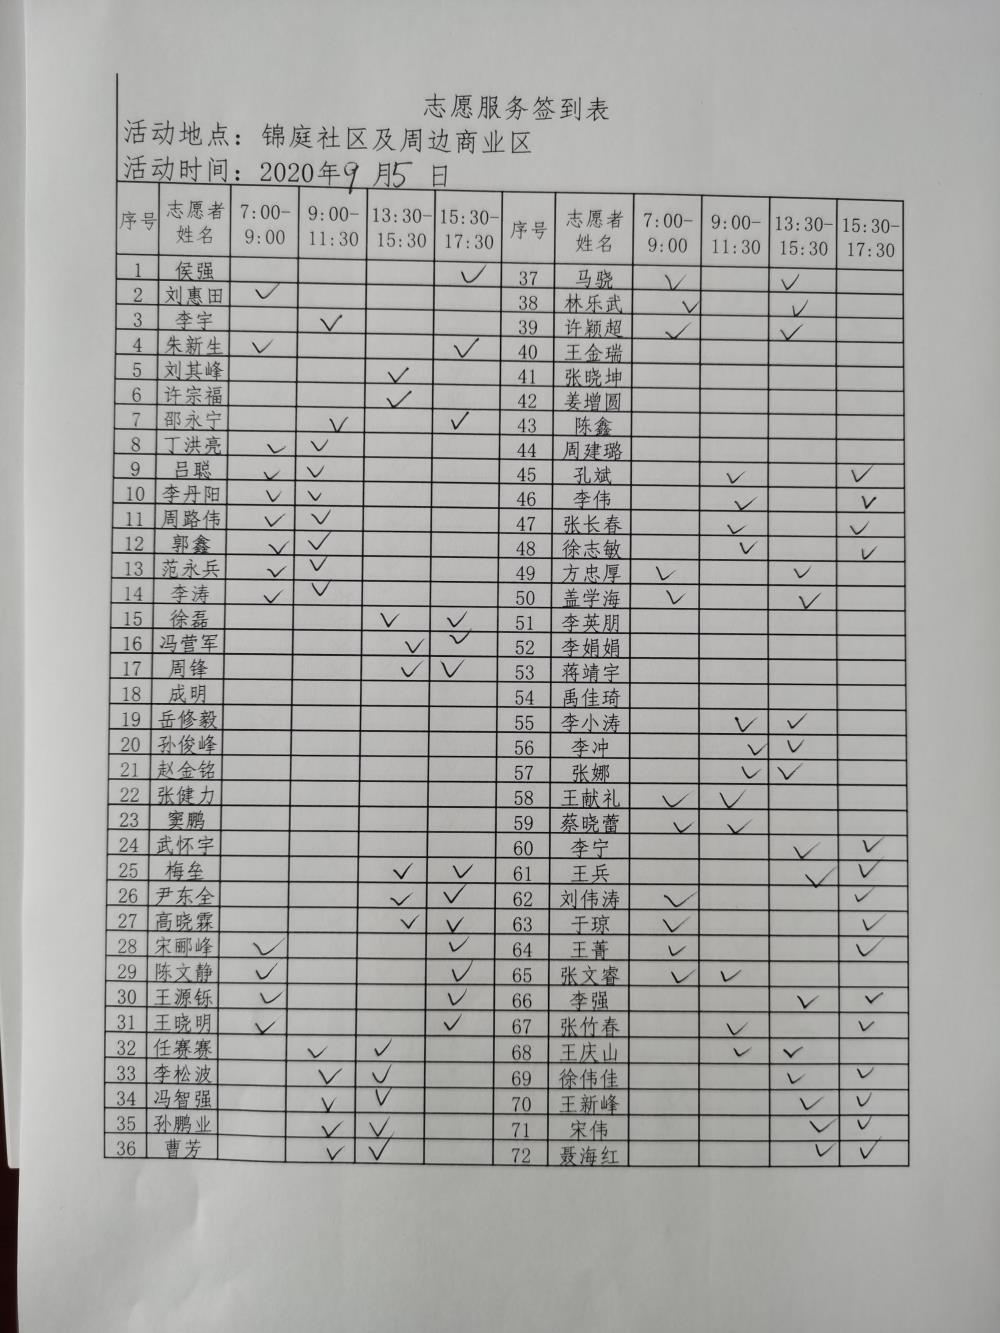 志愿服务签到表
活动地点：锦庭社区及周边商业区
活动时间：2020年9月5日
序号 志愿者姓名 7:00-9:00 9:00-11:30 13:30-15:30 15:30-17:30 序号 志愿者姓名 7:00-9:00 9:00-11:30 13:30-15:30 15:30-17:30
1 侯强 ✓ 37 马骁 ✓ ✓
2 刘惠田 ✓ 38 林乐武 ✓ ✓
3 李宇 ✓ 39 许颖超 ✓ ✓
4 朱新生 ✓ ✓ 40 王金瑞
5 刘其峰 ✓ 41 张晓坤
6 许宗福 ✓ 42 姜增圆
7 邵永宁 ✓ ✓ 43 陈鑫
8 丁洪亮 ✓ ✓ 44 周建璐
9 吕聪 ✓ ✓ 45 孔斌 ✓ ✓
10 李丹阳 ✓ ✓ 46 李伟 ✓ ✓
11 周路伟 ✓ ✓ 47 张长春 ✓ ✓
12 郭鑫 ✓ ✓ 48 徐志敏 ✓ ✓
13 范永兵 ✓ ✓ 49 方忠厚 ✓ ✓
14 李涛 ✓ ✓ 50 盖学海 ✓ ✓
15 徐磊 ✓ ✓ 51 李英朋
16 冯营军 ✓ ✓ 52 李娟娟
17 周锋 ✓ ✓ 53 蒋靖宇
18 成明 54 禹佳琦
19 岳修毅 55 李小涛 ✓ ✓
20 孙俊峰 56 李冲 ✓ ✓
21 赵金铭 57 张娜 ✓ ✓
22 张健力 58 王献礼 ✓ ✓
23 窦鹏 59 蔡晓蕾 ✓ ✓
24 武怀宇 60 李宁 ✓ ✓
25 梅垒 ✓ ✓ 61 王兵 ✓ ✓
26 尹东全 ✓ ✓ 62 刘伟涛 ✓ ✓
27 高晓霖 ✓ ✓ 63 于琼 ✓ ✓
28 宋郦峰 ✓ ✓ 64 王菁 ✓ ✓
29 陈文静 ✓ ✓ 65 张文睿 ✓ ✓
30 王源铄 ✓ ✓ 66 李强 ✓ ✓
31 王晓明 ✓ ✓ 67 张竹春 ✓ ✓
32 任赛赛 ✓ ✓ 68 王庆山 ✓ ✓
33 李松波 ✓ ✓ 69 徐伟佳 ✓ ✓
34 冯智强 ✓ ✓ 70 王新峰 ✓ ✓
35 孙鹏业 ✓ ✓ 71 宋伟 ✓ ✓
36 曹芳 ✓ ✓ 72 聂海红 ✓ ✓